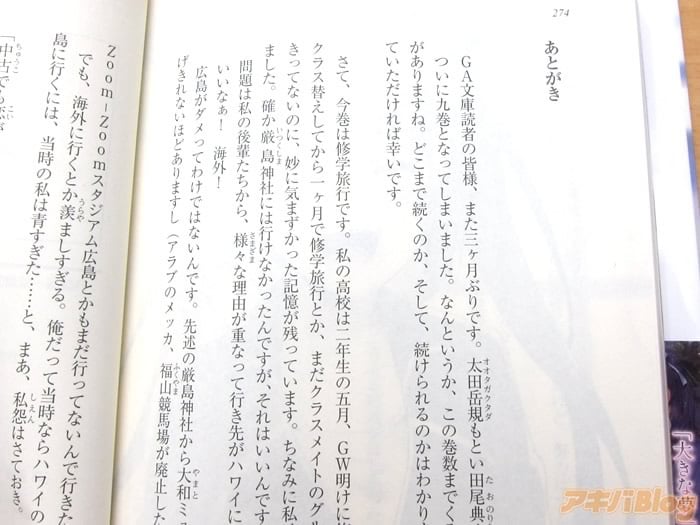 274
あとがき
GA文庫読者の皆様、また三ヶ月ぶりです。太田岳規もとい田尾典
オオタガクタダ
たおのり
ついに九巻となってしまいました。なんというか、この巻数までく
がありますね。どこまで続くのか、そして、続けられるのかはわかり
ていただければ幸いです。
さて、今巻は修学旅行です。私の高校は二年生の五月、GW明けに
クラス替えしてから一ヶ月で修学旅行とか、まだクラスメイトのグル
きってないのに、妙に気まずかった記憶が残っています。ちなみに私
ました。確か厳島神社には行けなかったんですが、それはいいんです
いつくしま
問題は私の後輩たちから、様々な理由が重なって行き先がハワイに
さまざま
いいなぁ! 海外!
広島がダメってわけではないんです。先述の厳島神社から大和ミュ
やまと
げきれないほどありますし(アラブのメッカ、福山競馬場が廃止した
ふくやま
Zoom-Zoomスタジアム広島とかもまだ行ってないんで行きた
でも、海外に行くとか羨ましすぎる。俺だって当時ならハワイの
うらや
島に行くには、当時の私は青すぎた……と、まあ、私怨はさておき。
しえん
「中古でも恋が
ちゅうこ
こい
「大きな夢
アキバBlog